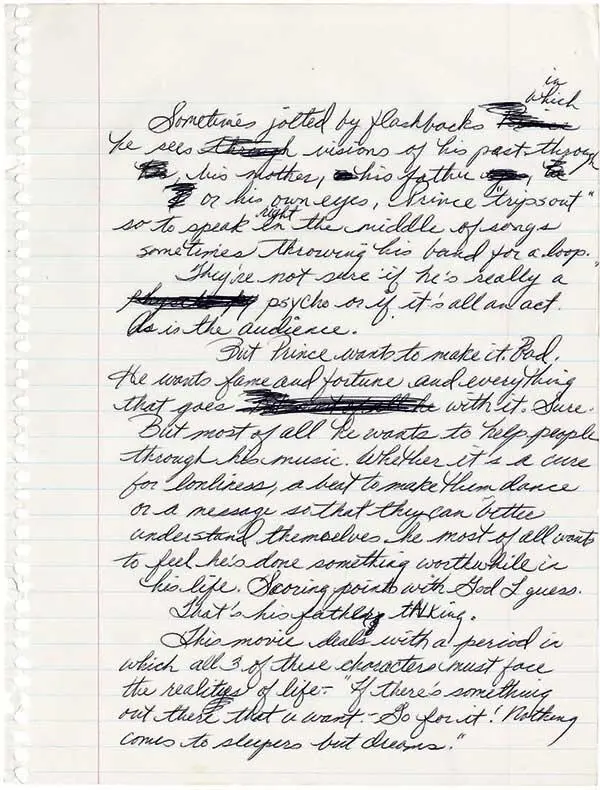 in
which
Sometimes jolted by flashbacks
he sees visions of his past through
his mother, his father
or his own eyes, Prince "trips out"
so to speak right in the middle of songs
sometimes throwing his band for a loop."
They're not sure if he's really a
psycho or if it's all an act.
As is the audience.
But Prince wants to make it. Bad.
He wants fame and fortune and everything
that goes with it. Sure.
But most of all he wants to help people
through his music. Whether it's a cure
for lonliness, a beat to make them dance
or a message so that they can better
understand themselves he most of all wants
to feel he's done something worthwhile in
his life. Scoring points with God I guess.
That's his father talking.
This movie deals with a period in
which all 3 of these characters must face
the realities of life - "If there's something
out there that u want - Go for it! Nothing
comes to sleepers but dreams."